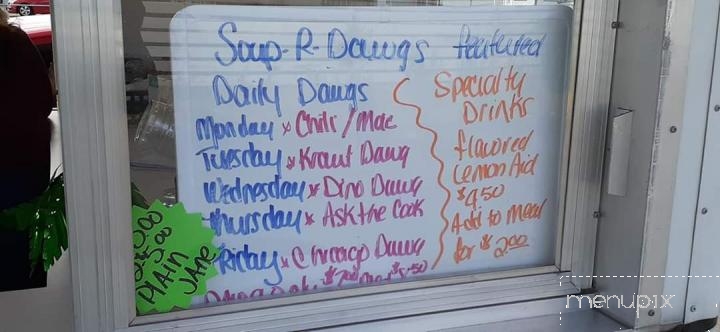 Soup-R-Dawgs featured
Daily Dawgs
Monday x Chili/Mac
Tuesday x Kraut Dawg
Wednesday x Dino Dawg
Thursday x Ask the Cook
Friday x Chicago Dawg
$7.00 $5.50
Specialty
Drinks
flavored
Lemon Aid
$4.50
Add to meal
for $2.00
PLAIN
JANE
menupix